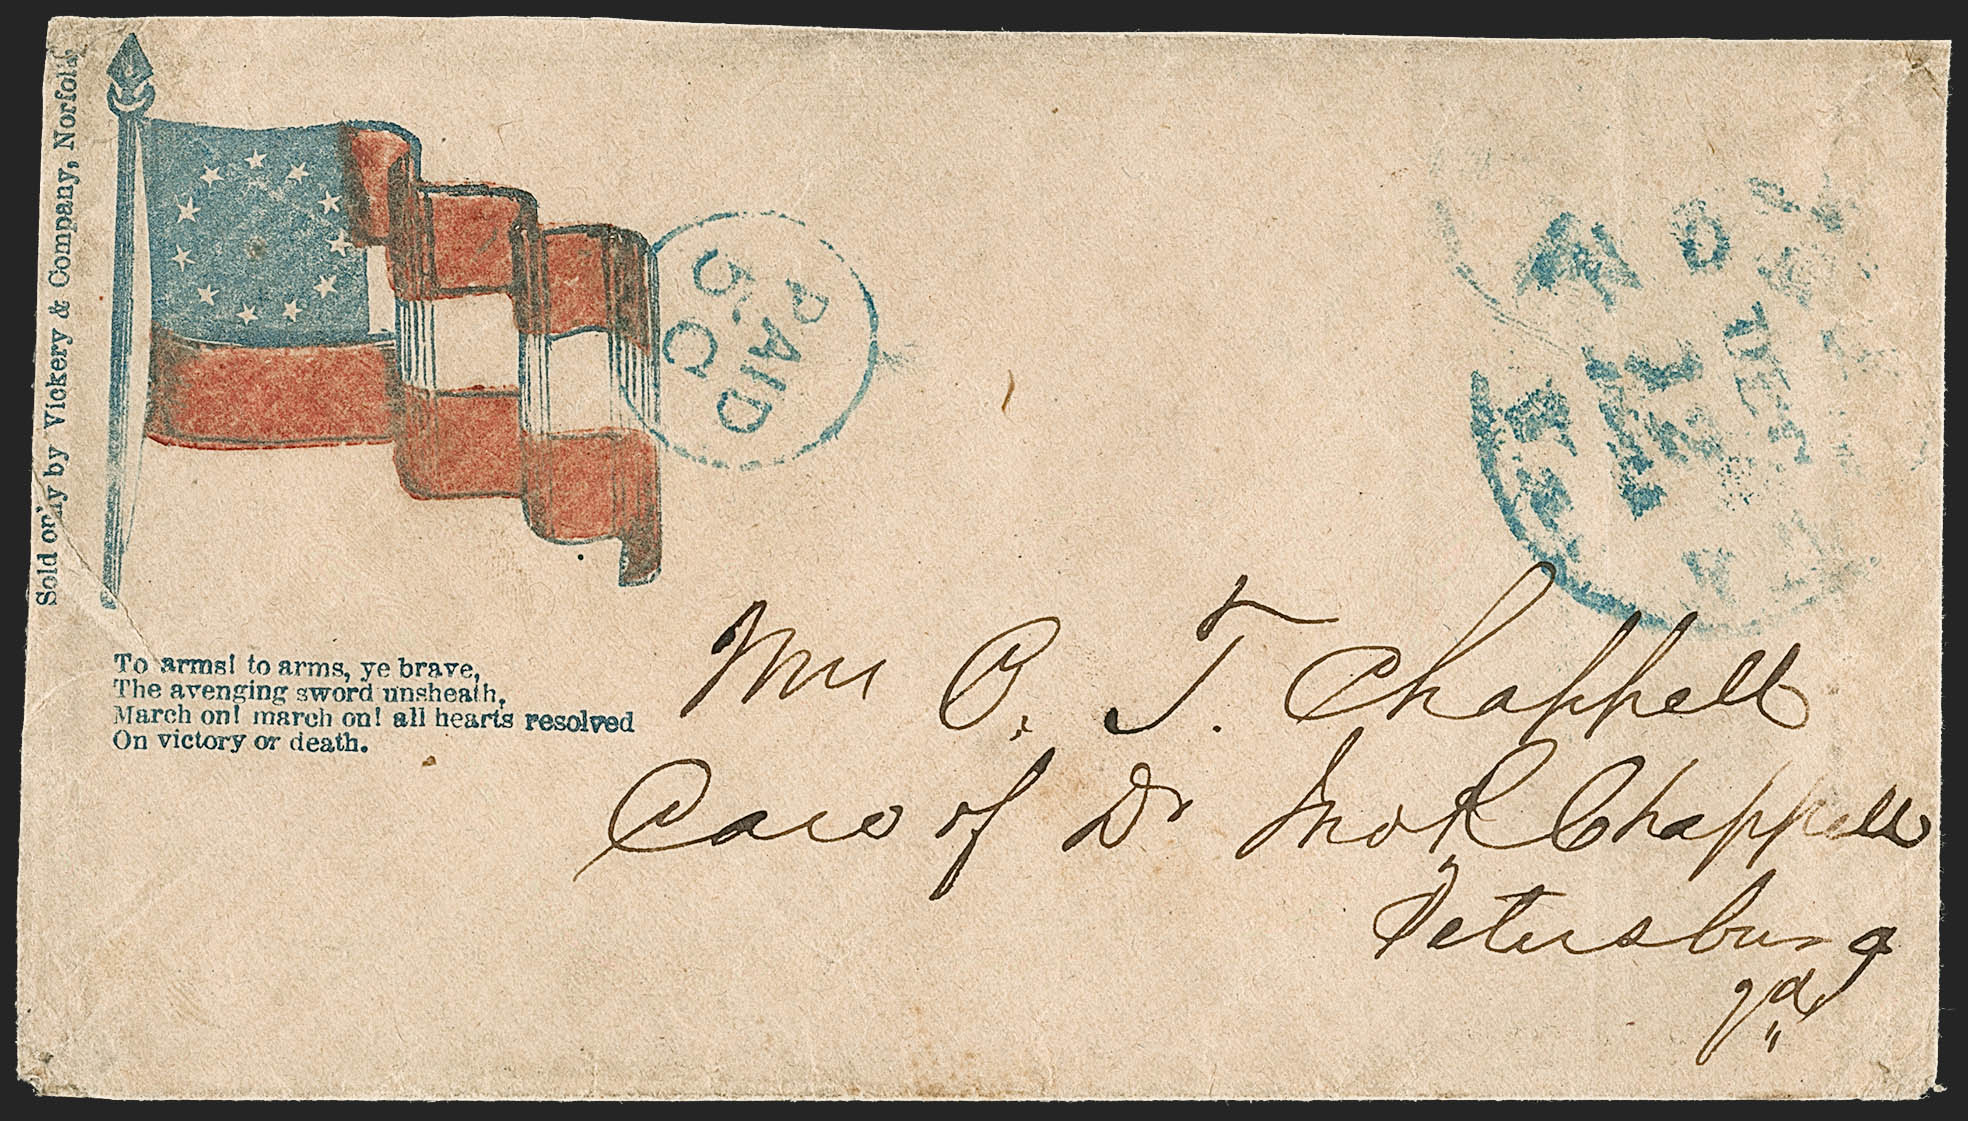 Sold only by Vickery & Company, Norfolk
PAID
5 C
To arms! to arms, ye brave,
The avenging sword unsheath,
March on! march on! all hearts resolved
On victory or death.
O. T. Chappell
Care of Dr Jno R Chappell
Petersburg
Va